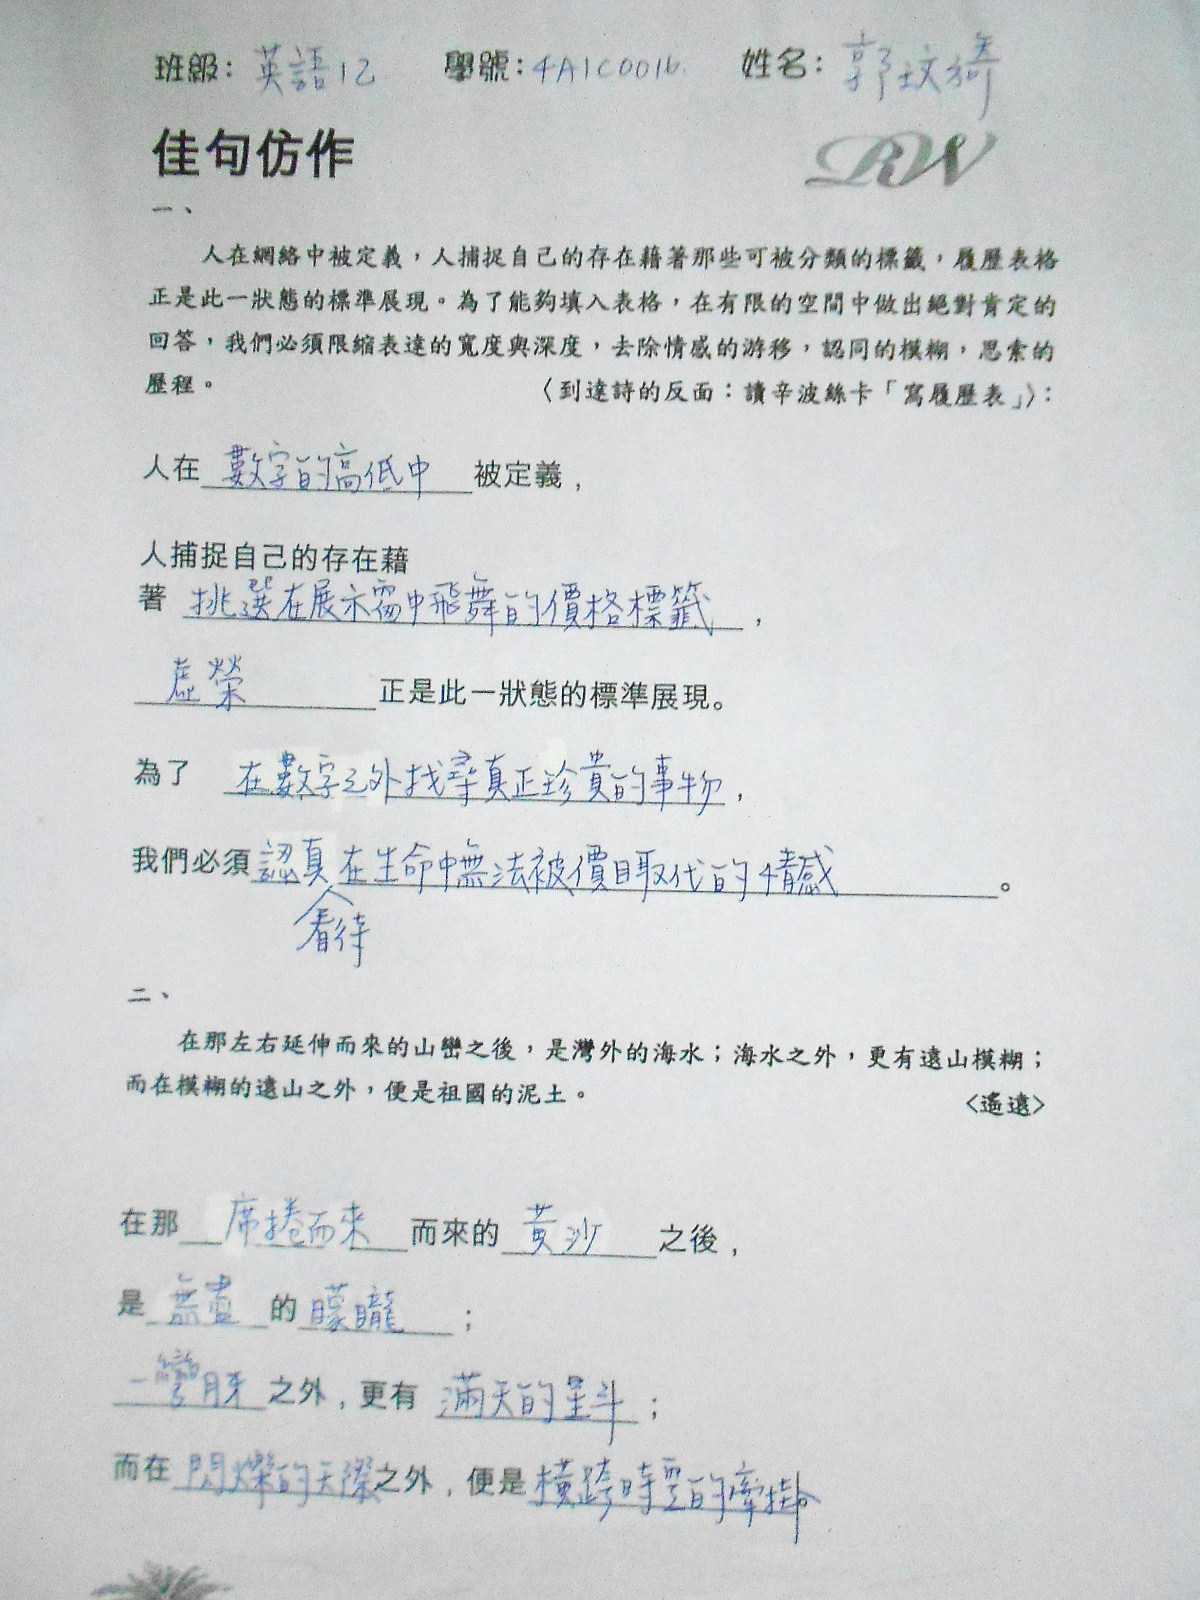 班級：英語1乙 學號：4A1C0016. 姓名：郭玟綺
佳句仿作
RW
一、
人在網絡中被定義，人捕捉自己的存在藉著那些可被分類的標籤，履歷表格
正是此一狀態的標準展現。為了能夠填入表格，在有限的空間中做出絕對肯定的
回答，我們必須限縮表達的寬度與深度，去除情感的游移，認同的模糊，思索的
歷程。 〈到達詩的反面：讀辛波絲卡「寫履歷表」〉：
人在 數字的高低中 被定義，
人捕捉自己的存在藉
著 挑選在展示窗中飛舞的價格標籤，
虛榮 正是此一狀態的標準展現。
為了 在數字之外找尋真正珍貴的事物，
我們必須 認真在生命中無法被價目取代的情感。
看待
二、
在那左右延伸而來的山巒之後，是灣外的海水；海水之外，更有遠山模糊；
而在模糊的遠山之外，便是祖國的泥土。 <遙遠>
在那 席捲而來 而來的 黃沙 之後，
是 無盡 的 矇矓；
一彎月牙 之外，更有 滿天的星斗；
而在 閃爍的天際 之外，便是 橫跨時空的牽掛